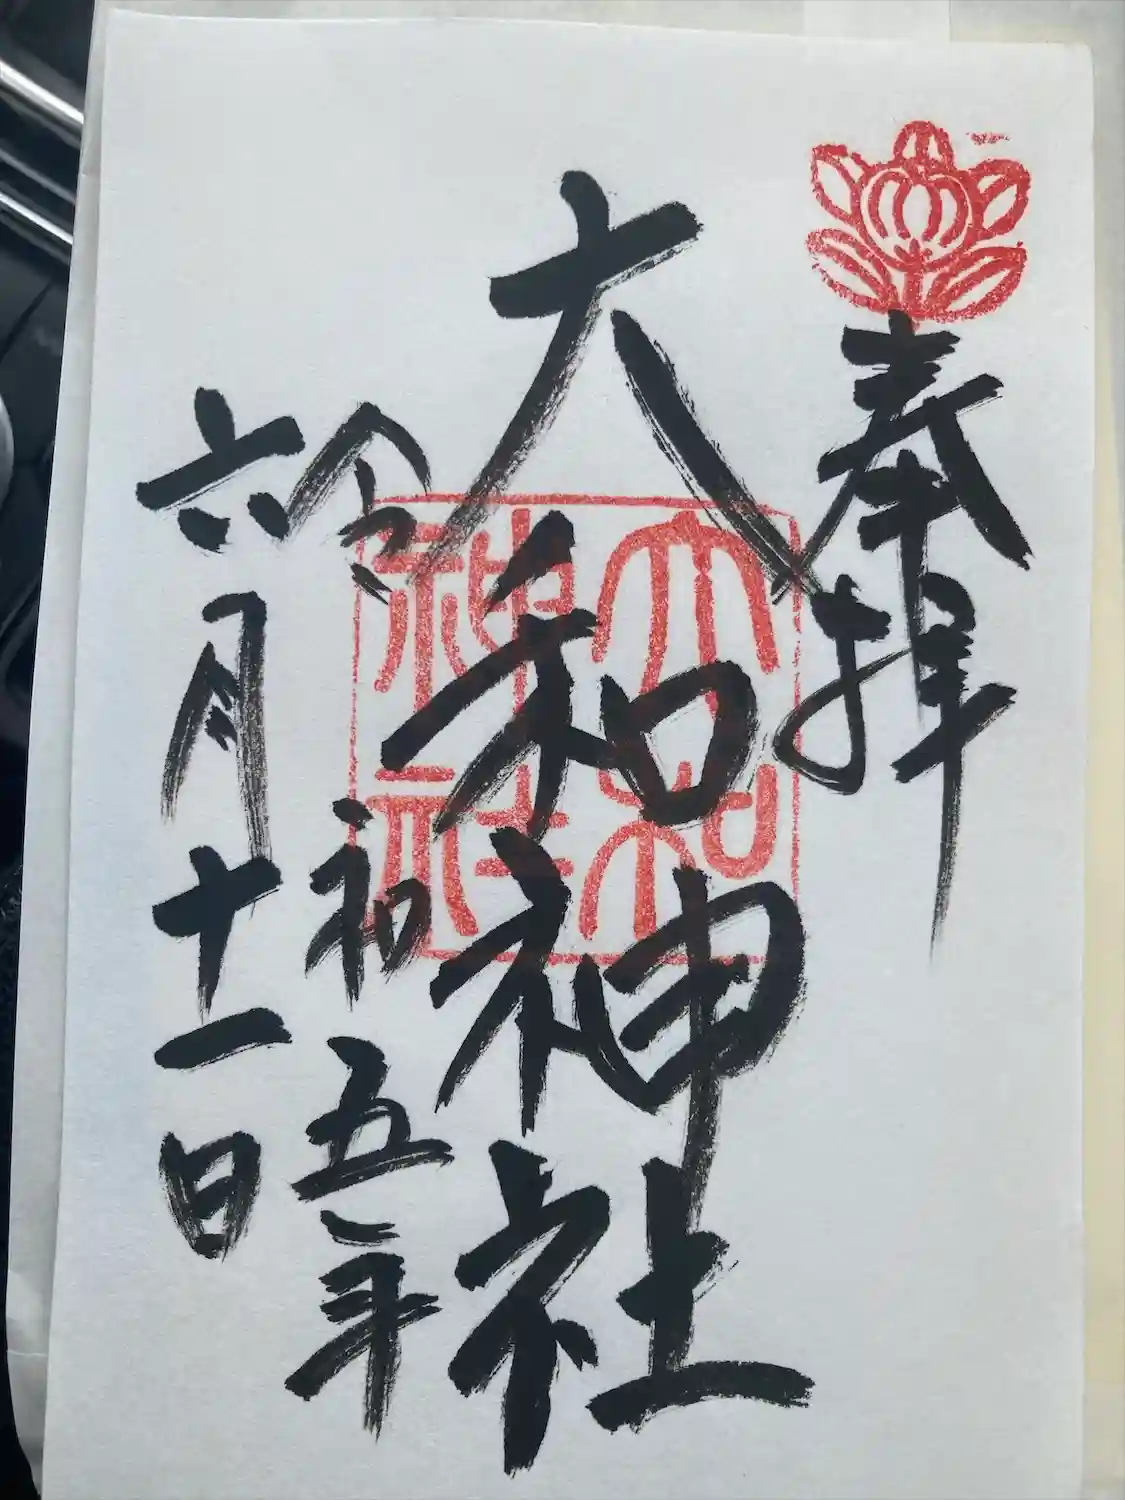 奉拝
大和神社
大和
神社
令和五年
六月十一日